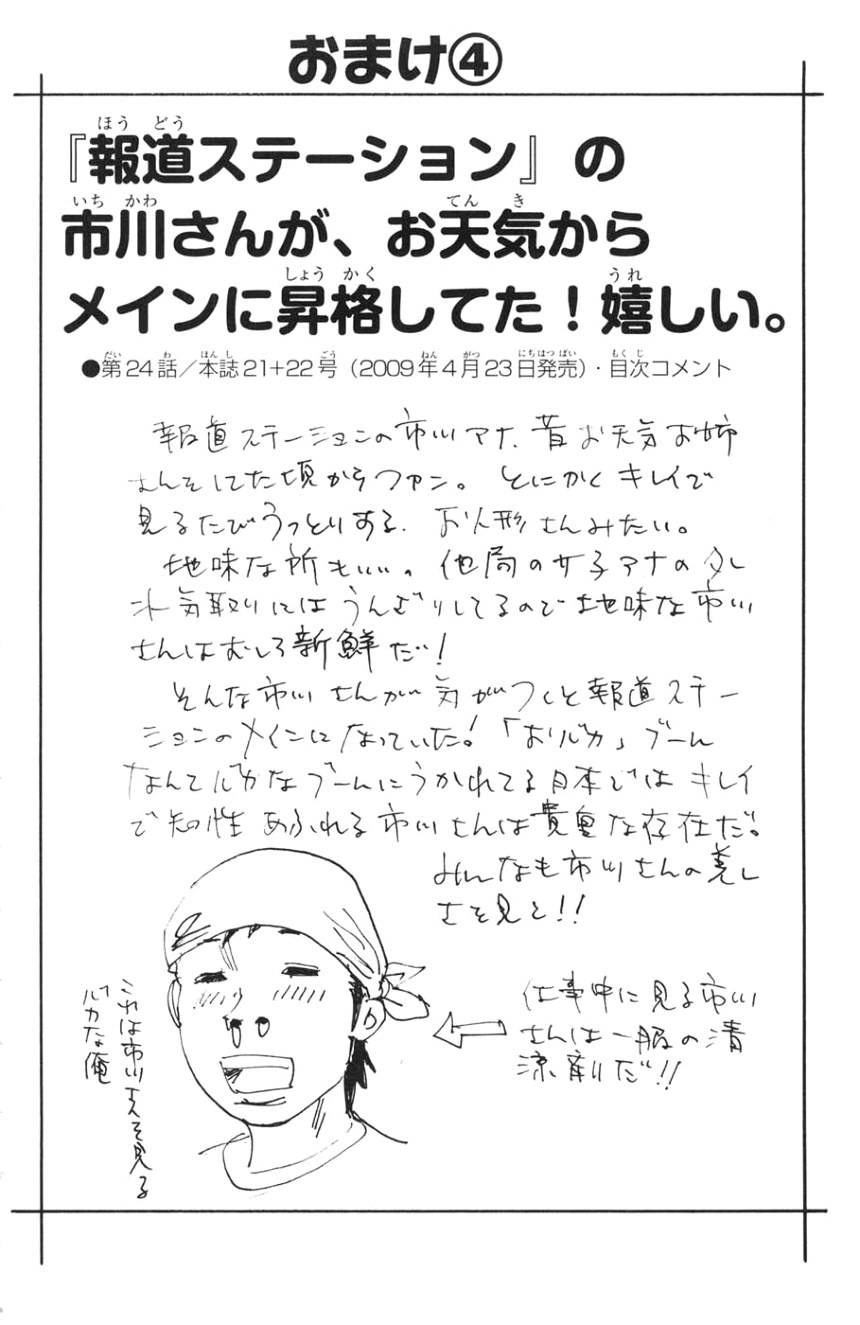 おまけ④
『報道ステーション』の
市川さんが、お天気から
メインに昇格してた！嬉しい。
●第24話／本誌21+22号（2009年4月23日発売）・目次コメント
報道ステーションの市川アナ、昔お天気お姉
さんをしてた頃からファン。とにかくキレイで
見るたびうっとりする、お人形さんみたい。
地味な所もいい。他局の女子アナの少し
人気取りにはうんざりしてるので地味な市川
さんはむしろ新鮮だ！
そんな市川さんが気がつくと報道ステー
ションのメインになっていた！「おバカ」ブーム
なんてバカなブームにうかれてる日本ではキレイ
で知性あふれる市川さんは貴重な存在だ。
みんなも市川さんの美し
さを見と!!
仕事中に見る市川
さんは一服の清
涼剤だ!!
これは市川さんを見る
バカな俺